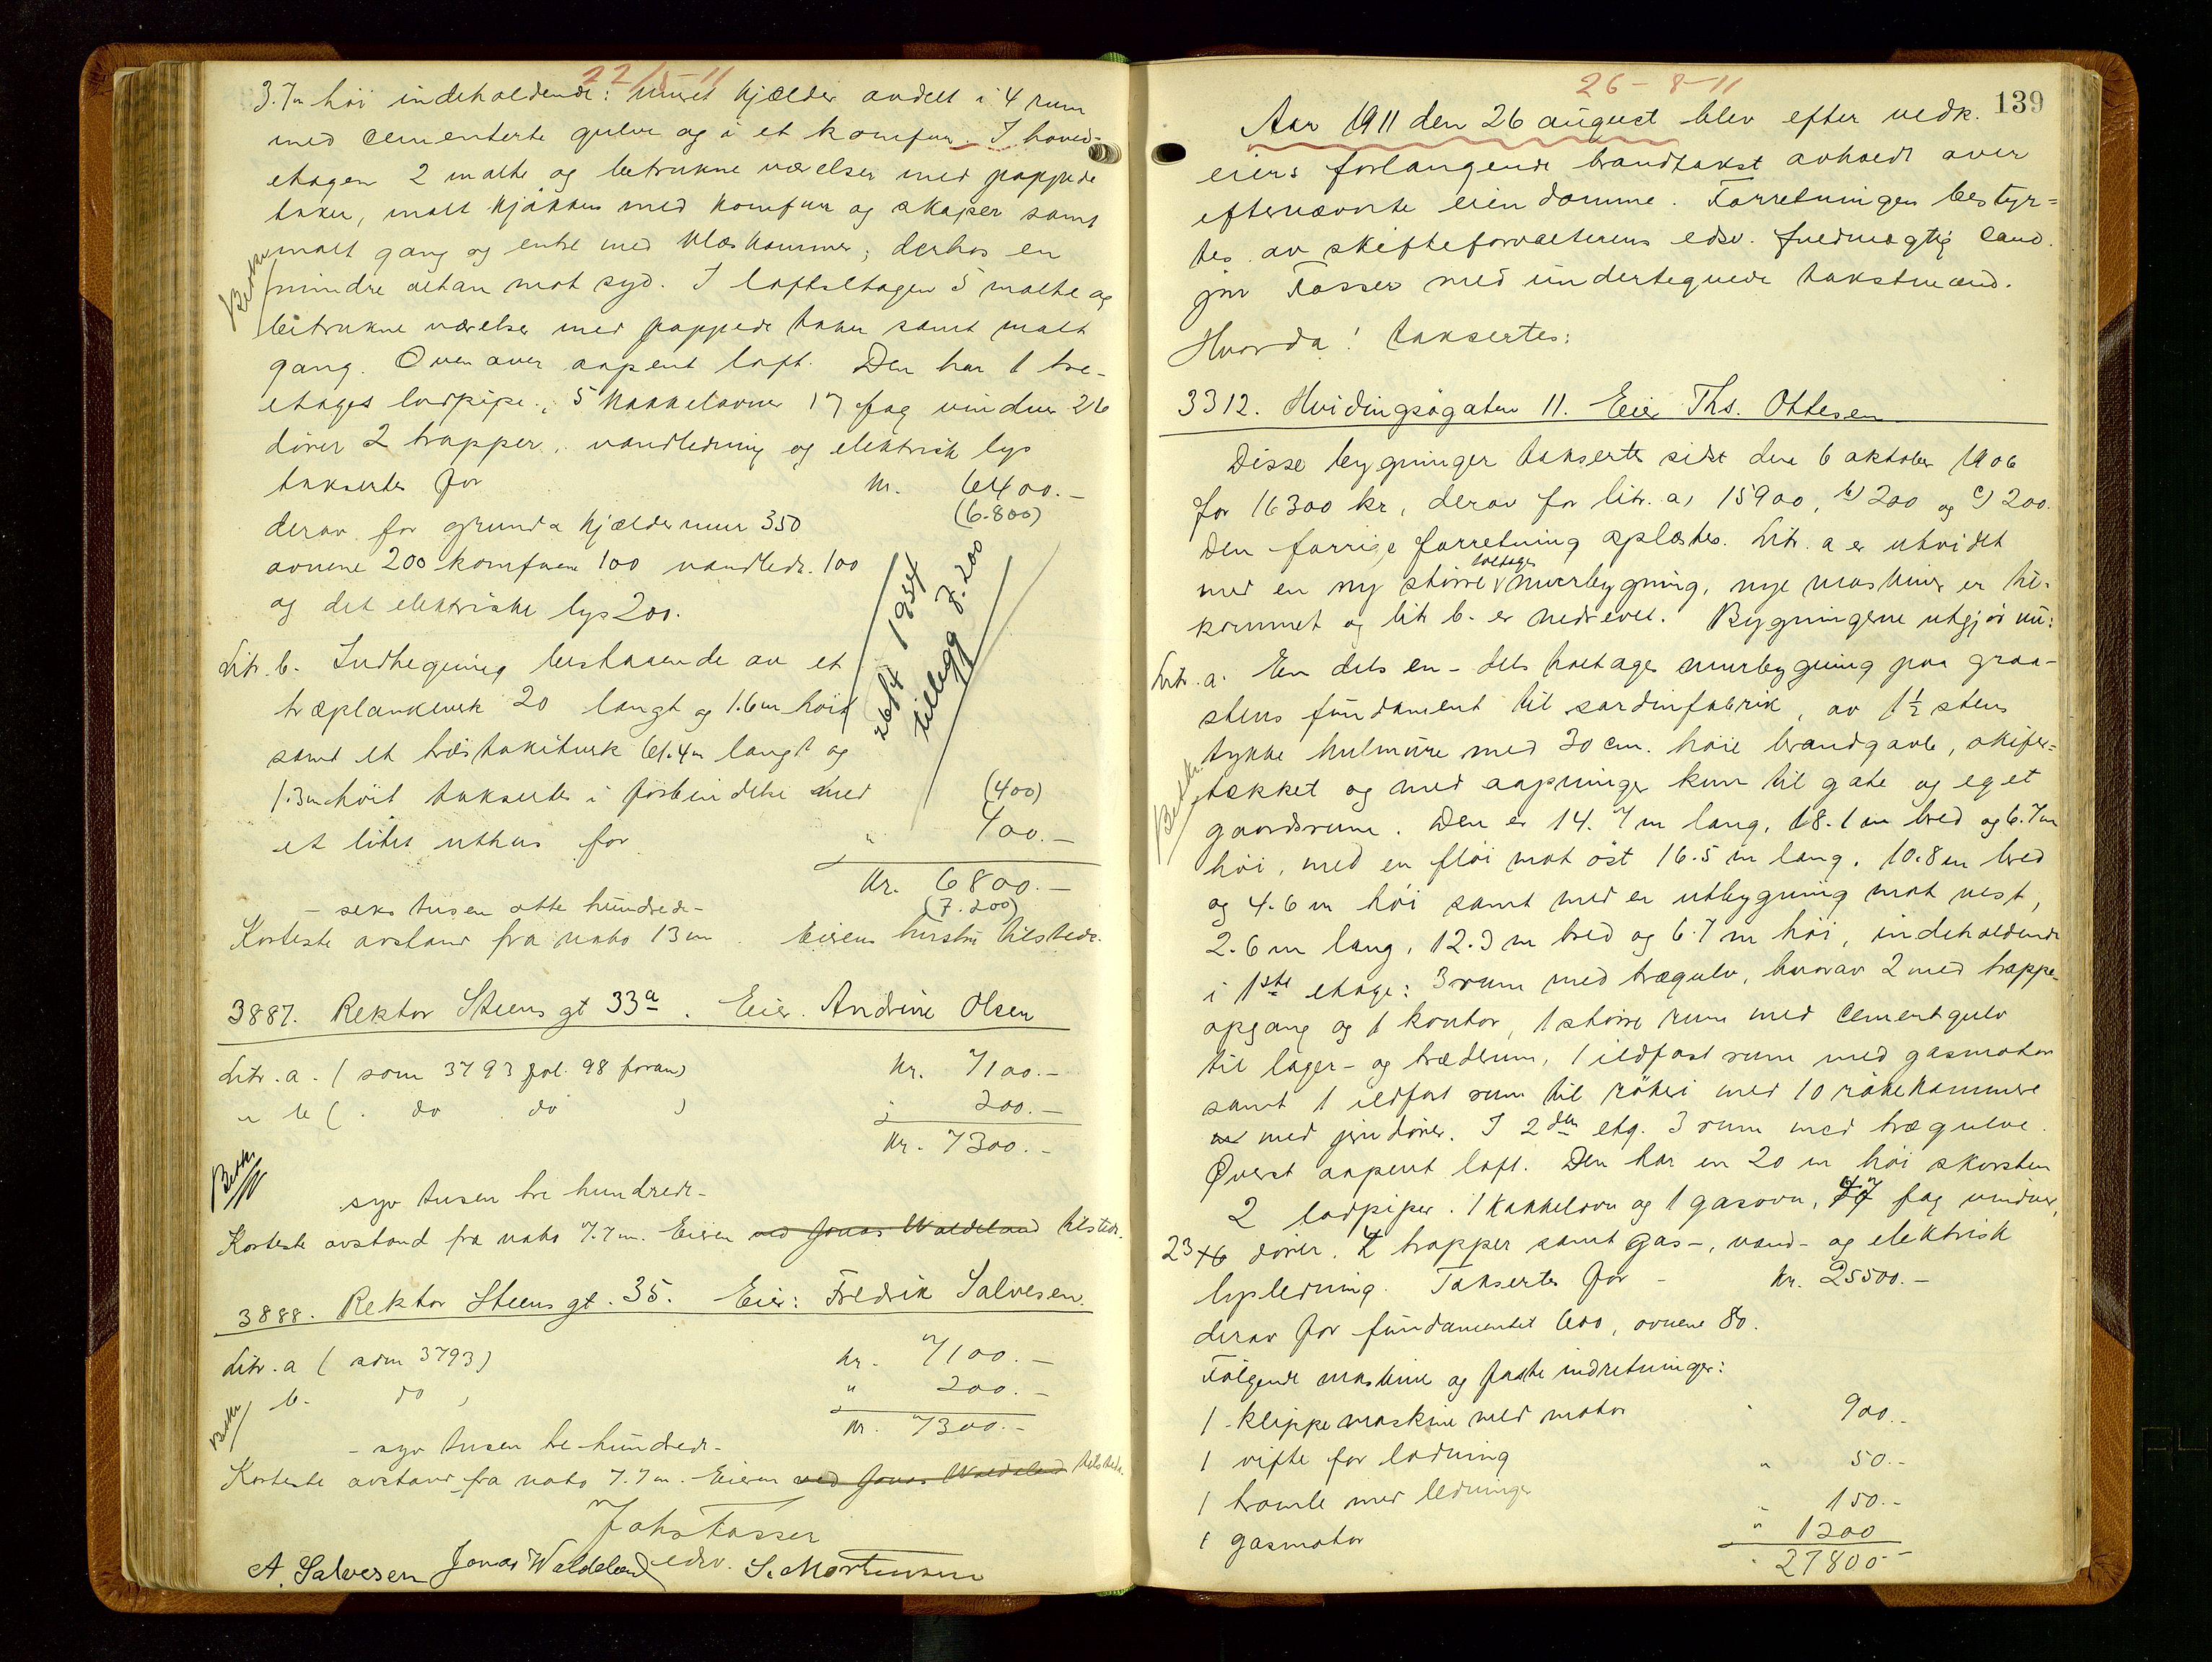 22/8-11
3.7m høi indeholdende: muret kjælder avdelt i 4 rum
med cementerte gulve og i et komfur. I hoved-
etagen 2 malte og betrukne værelser med pappede
taker, malt kjøkken med komfur og skaper samt
malt gang og entre med klæskammer; derhos en
mindre altan mot syd. I loftsetagen 5 malte og
betrukne værelser med pappede taker samt malt
gang. Ovenover aapent loft. Den har 1 tre-
etages lodpipe, 5 kakkelovner 17 fag vinduer 26
dører 2 trapper, vandledning og elektrisk lys
takseres for kr. 6400.-
(6.800)
derav for grund & kjældermur 350
ovnene 200 komfuren 100 vandledn. 100
og det elektriske lys 200.
26/4 1934
tillegg 7.200
Litr. b. Indhegning bestaaende av et
træplankeverk 20 langt og 1.6m høit
samt et træstakitverk 61.4m langt og
1.3m høit takseres i forbindelse med (400)
et litet uthus for " 400.-
Kr. 6800.-
- seks tusen otte hundrede- (7.200)
Korteste avstand fra nabo 13m. Eierens hustru tilstede.
3887. Rektor Steens gt 33a. Eier. Andrine Olsen
Litr. a. (som 3793 fol. 98 foran) kr. 7100.-
" b ( do do ) " 200.-
kr. 7300.-
syv tusen tre hundrede-
Korteste avstand fra nabo 7.7m. Eieren ved Jonas Waldeland tilstede.
3888. Rektor Steens gt. 35. Eier: Fredrik Salvesen.
Litr. a (som 3793) kr. 7100.-
b. do , " 200.-
kr. 7300.-
- syv tusen tre hundrede-
Korteste avstand fra nabo 7.7m. Eieren ved Jonas Waldeland tilstede.
Johs Fasser
edsv.
A. Salvesen Jonas Waldeland S. Mortensen
26-8-11
139
Aar 1911 den 26 august blev efter vedk.
eiers forlangende brandtakst avholdt over
efternævnte eiendomme. Forretningen bestyr-
tes av skifteforvalterens edsv. fuldmægtig cand.
jur Fasser med undertegnede takstmænd.
Hvorda! taksertes:
3312. Hvidingsøgaten 11. Eier Ths. Ottesen
Disse bygninger taksertes sidst den 6 oktober 1906
for 16300 kr, derav for litr. a) 15900, b) 200 og c) 200.
Den forrige forretning oplæstes. Litr. a er utvidet
med en ny større toetages murbygning, nye maskiner er til-
kommet og litr b. er nedrevet. Bygningerne utgjør nu:
Litr. a. En dels en- dels toetages murbygning paa graa-
stens fundament til sardinfabrik, av 1½ stens
tykke hulmure med 30 cm. høie brandgavle, skifer-
tækket og med aapninger kun til gate og eget
gaardsrum. Den er 14.7m lang, 18.1m bred og 6.7m
høi, med en fløi mot øst 16.5m lang, 10.8m bred
og 4.6m høi samt med en utbygning mot vest,
2.6m lang, 12.3m bred og 6.7m høi, indeholdende
i 1ste etage: 3 rum med trægulv, hvorav 2 med trappe-
opgang og 1 kontor, 1 større rum med cementgulv
til lager- og træderum, 1 ildfast rum med gasmotor
samt 1 ildfast rum til røkeri med 10 røkekammere
med jerndører. I 2den etg. 3 rum med trægulve.
Øverst aapent loft. Den har en 20 m høi skorsten
2 lodpiper. 1 kakkelovn og 1 gasovn, 47 fag vinduer,
23 dører, 2 trapper samt gas-, vand- og elektrisk
lysledning. Takseres for - kr. 25500.-
derav for fundamentet 600, ovnene 80.
Følgende maskiner og faste indretninger:
1 klippemaskine med motor " 900.-
1 vifte for lodning " 50.-
1 tromle med ledninger " 150.-
1 gasmotor " 1200
" 27800-